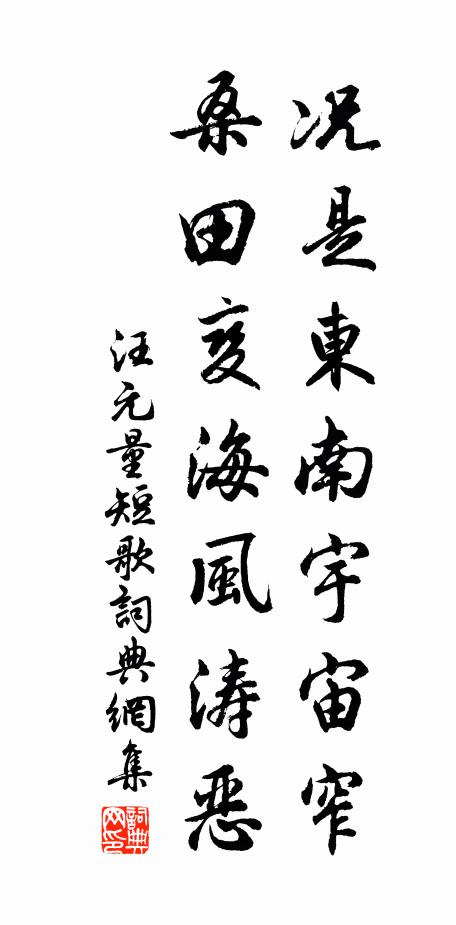 况是東南宇宙窄
桑田变海風涛恶
汪元量短歌詞典網集
詞典
网印